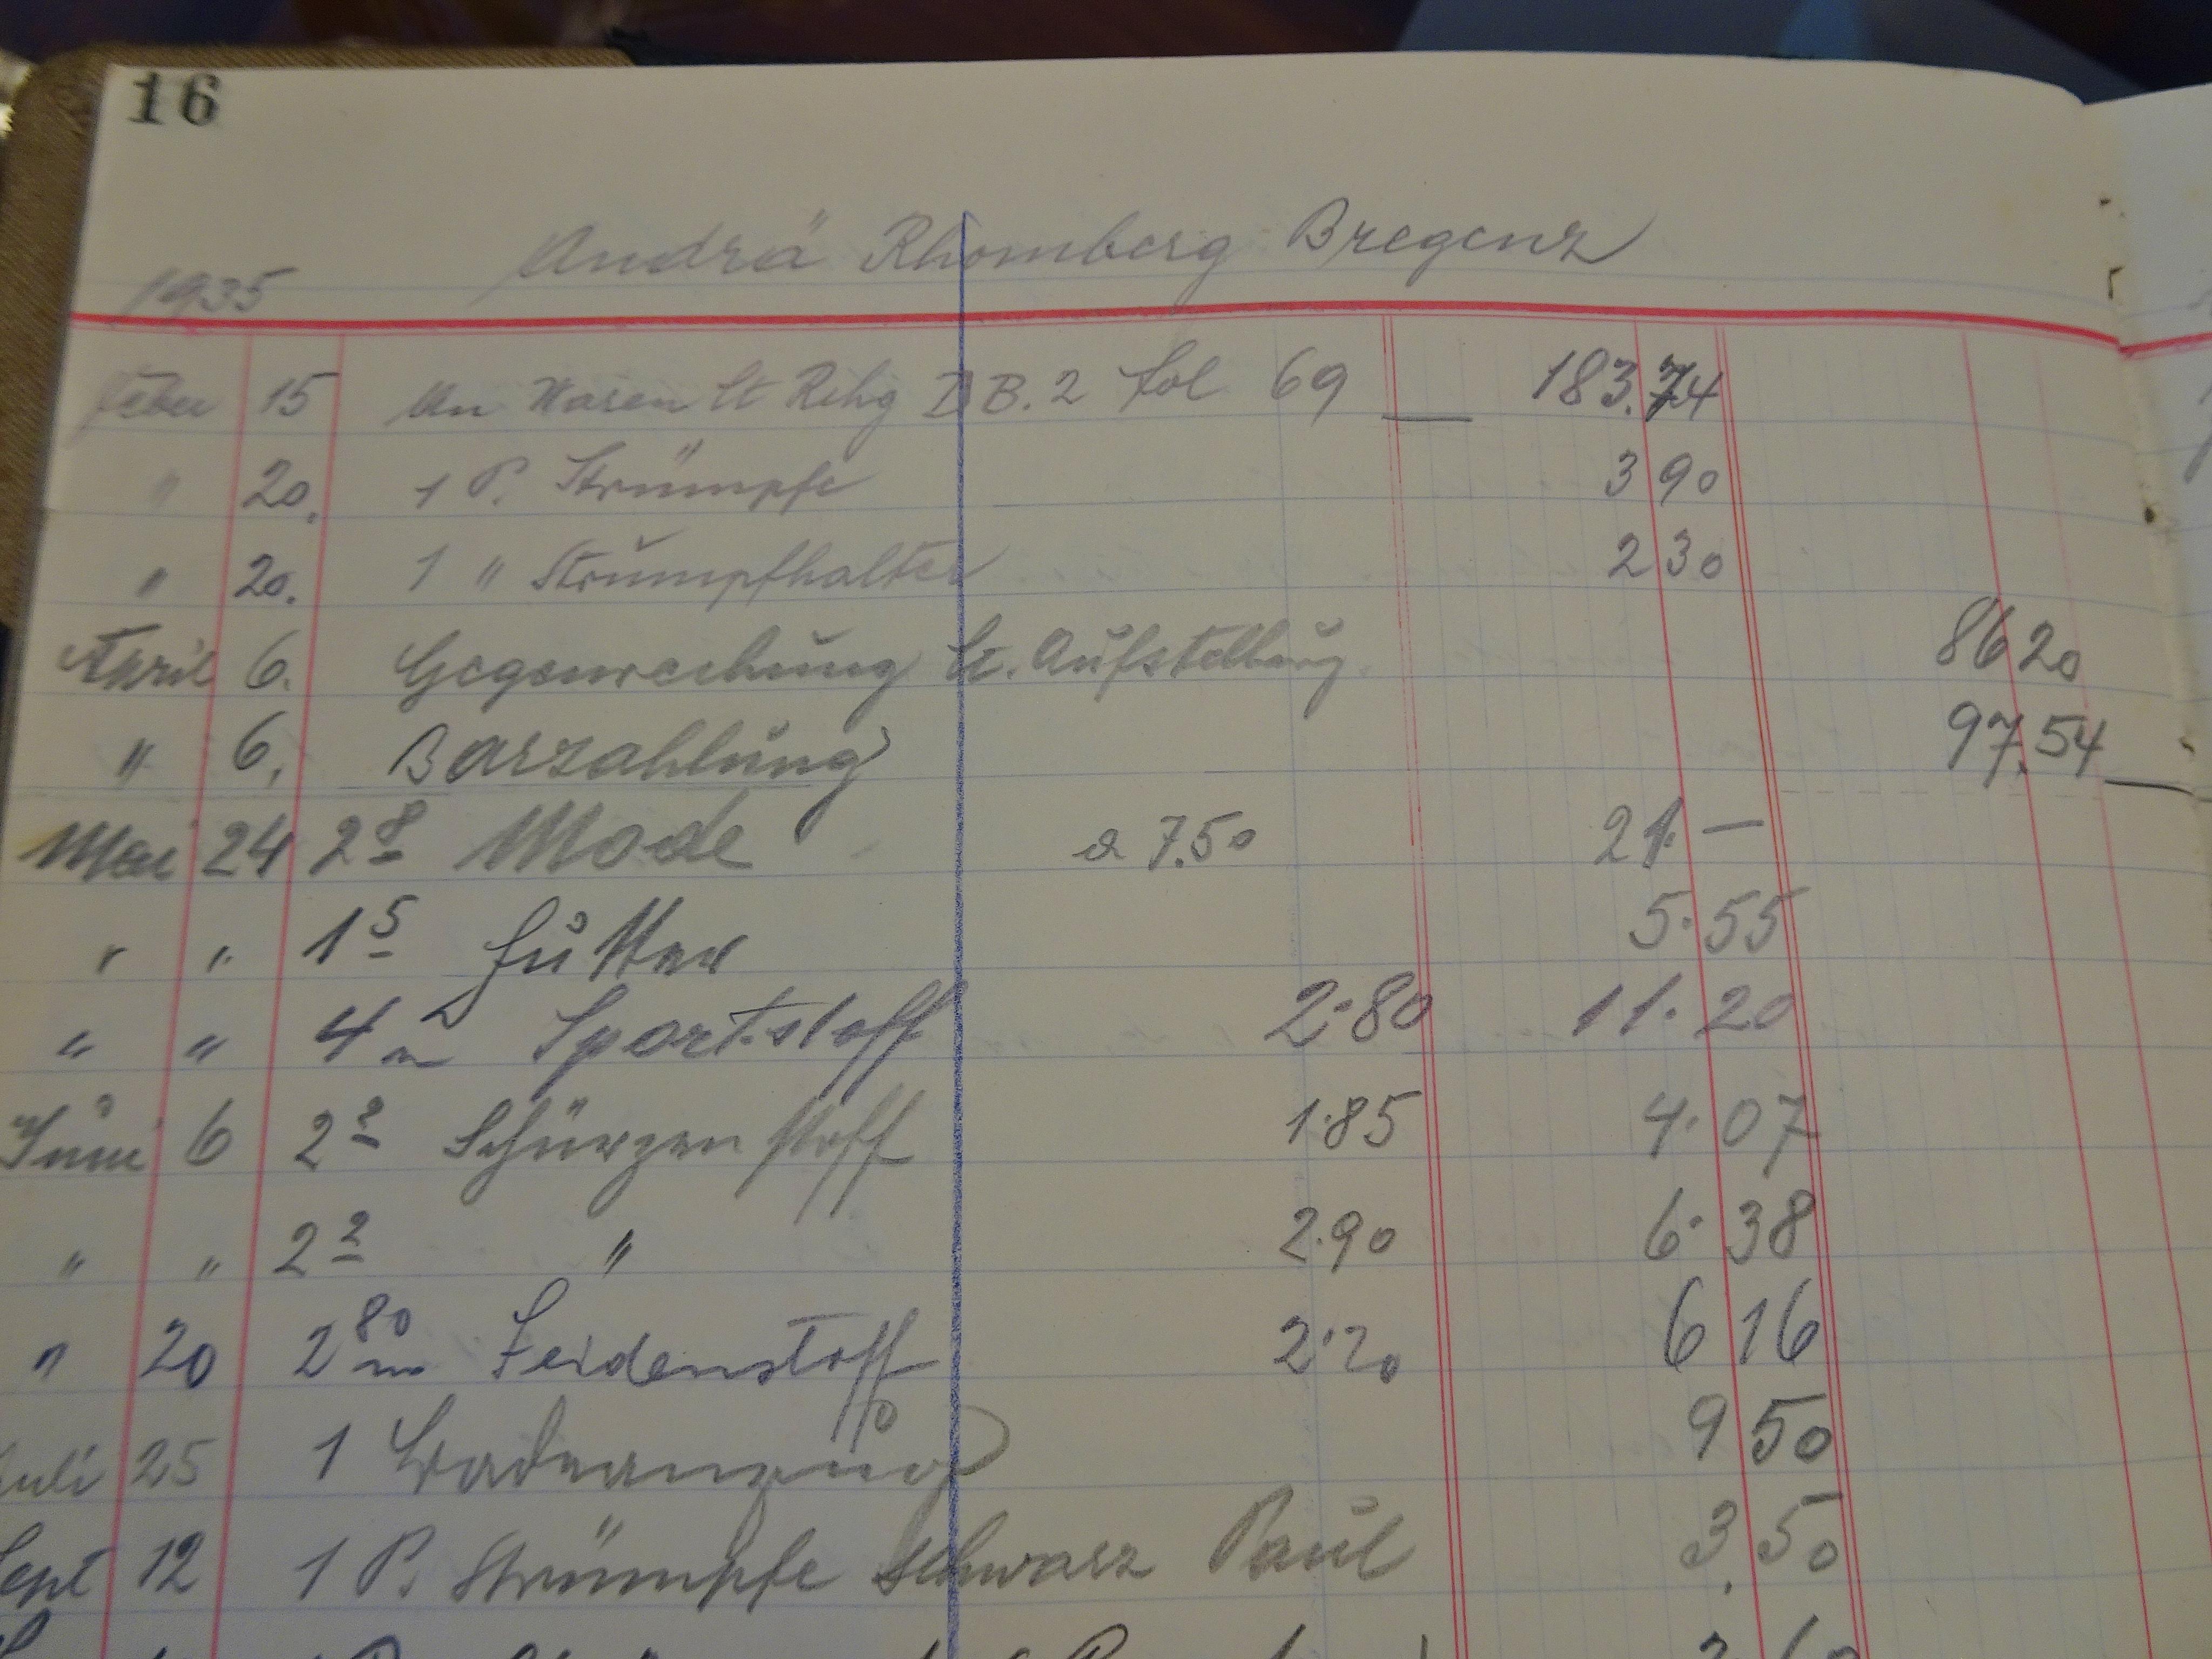 16
Andrä Rhomberg Bregenz
1935
Feber 15 An Waren lt Rchg D B. 2 fol 69 — 183.74
" 20. 1 P. Strümpfe 3 90
" 20. 1 " Strumpfhalter 2 30
April 6. Gegenrechnung lt. Aufstellung. 86 20
" 6. Barzahlung 97.54
Mai 24 2 8 Mode a 7.50 21.—
" " 1 5 Futter 5.55
" " 4 m Sportstoff 2.80 11.20
Juni 6 2 2 Schürzenstoff 1.85 4.07
" " 2 2 " 2.90 6.38
" 20 2 80 m Seidenstoff 2.20 6 16
Juli 25 1 Badeanzug 9 50
Sept 12 1 P. Strümpfe schwarz Paul 3.50